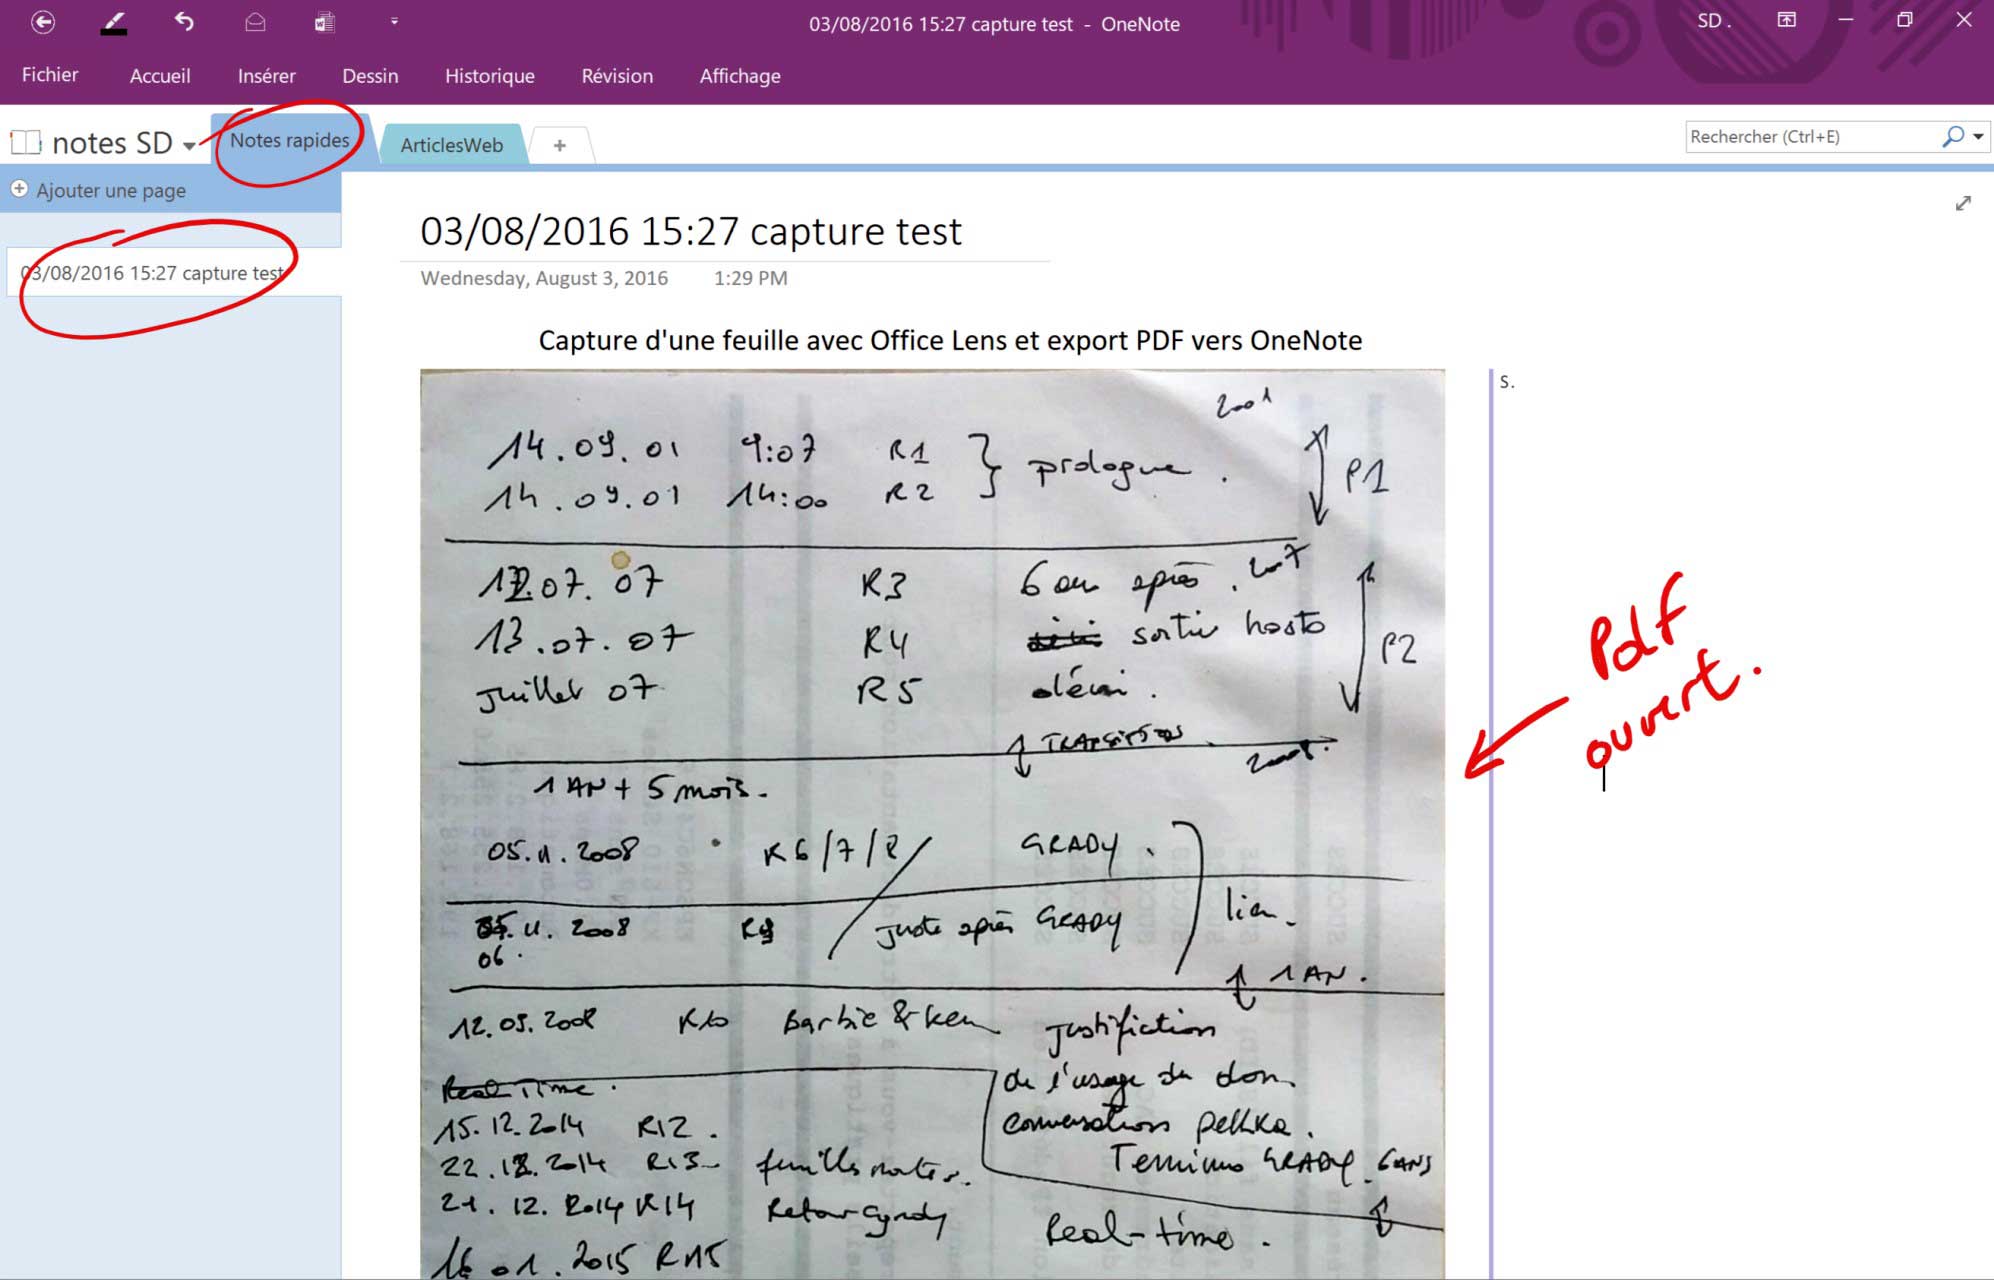 03/08/2016 15:27 capture test - OneNote
SD .
Fichier Accueil Insérer Dessin Historique Révision Affichage
notes SD Notes rapides ArticlesWeb +
Rechercher (Ctrl+E)
Ajouter une page
03/08/2016 15:27 capture test
03/08/2016 15:27 capture test
Wednesday, August 3, 2016 1:29 PM
Capture d'une feuille avec Office Lens et export PDF vers OneNote
S.
2001
14.09.01 9:07 R1 } prologue. P1
14.09.01 14:00 R2
12.07.07 R3 6 ans après. 2007
13.07.07 R4 sortie hosto P2
juillet 07 R5
TRANSITION
1 AN + 5 mois.
05.11.2008 R6/7/8 GRADY.
05.11.2008 R9 juste après GRADY lien.
06.
1 AN.
12.09.2008 R10 Barbie & Ken justifiction
de l'usage du don.
Real Time.
15.12.2014 R12. conversation
22.12.2014 R13 feuilles notes. Terminus GRADY. 6 ANS
21.12.2014 R14 Retour
Real-time.
16.01.2015 R15
Pdf
ouvert.